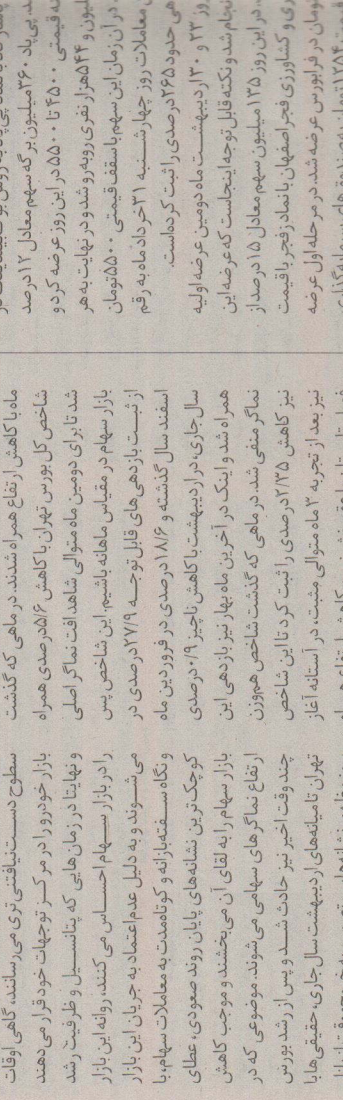 بد پی یاد ۳۶۰میلیون برگه سهم معادل ۱۲درصد
قیمتی ۴۵۰۰ تا ۵۵۰۰ در این روز عرضه کرد و
میلیون و ۵۴۴هزار نفری روبه‌رو شد و در نهایت به هر
در آن زمان این سهم با سقف قیمتی ۵۵۰۰تومان
معاملات روز چهارشنبه ۳۱خرداد ماه به رقم
حدود ۲۶۵درصدی را ثبت کرده‌است.
روز ۲۳ و ۳۰اردیبهشت ماه دومین عرضه اولیه
انجام شد و نکته قابل توجه اینجاست که عرضه این
در این روز ۱۳۵میلیون سهم معادل ۱۵درصد از
و کشاورزی فجر اصفهان با نماد زفجر با قیمت
تومان در فرابورس عرضه شد. در مرحله اول عرضه
ماه با کاهش ارتفاع همراه شدند. در ماهی که گذشت
شاخص کل بورس تهران با کاهش ۵/۶درصدی همراه
شد تا برای دومین ماه متوالی شاهد افت نماگر اصلی
بازار سهام در مقیاس ماهانه باشیم. این شاخص پس
از ثبت بازدهی‌های قابل توجه ۲۷/۹درصدی در
اسفند سال گذشته و ۱۸/۶درصدی در فروردین ماه
سال جاری، در اردیبهشت با کاهش ناچیز ۰/۹درصدی
همراه شد و اینک در آخرین ماه بهار نیز بازدهی این
نماگر منفی شد. در ماهی که گذشت شاخص هم‌وزن
نیز کاهش ۲/۳۵درصدی را ثبت کرد تا این شاخص
نیز بعد از تجربه ۳ماه متوالی مثبت، در آستانه آغاز
سطوح دست‌نیافتنی تری می‌رسانند، گاهی اوقات
بازار خودرو را در مرکز توجهات خود قرار می‌دهند
و نهایتا در زمان‌هایی که پتانسیل و ظرفیت رشد
را در بازار سهام احساس می‌کنند، روانه این بازار
می‌شوند و به دلیل عدم‌اعتماد به جریان این بازار
و نگاه سفته‌بازانه و کوتاه‌مدت به معاملات سهام، با
کوچک‌ترین نشانه‌های پایان روند صعودی، عطای
بازار سهام را به لقای آن می‌بخشند و موجب کاهش
ارتفاع نماگرهای سهامی می‌شوند. موضوعی که در
چند وقت اخیر نیز حادث شد و پس از رشد بورس
تهران تا میانه‌های اردیبهشت سال جاری، حقیقی‌ها با